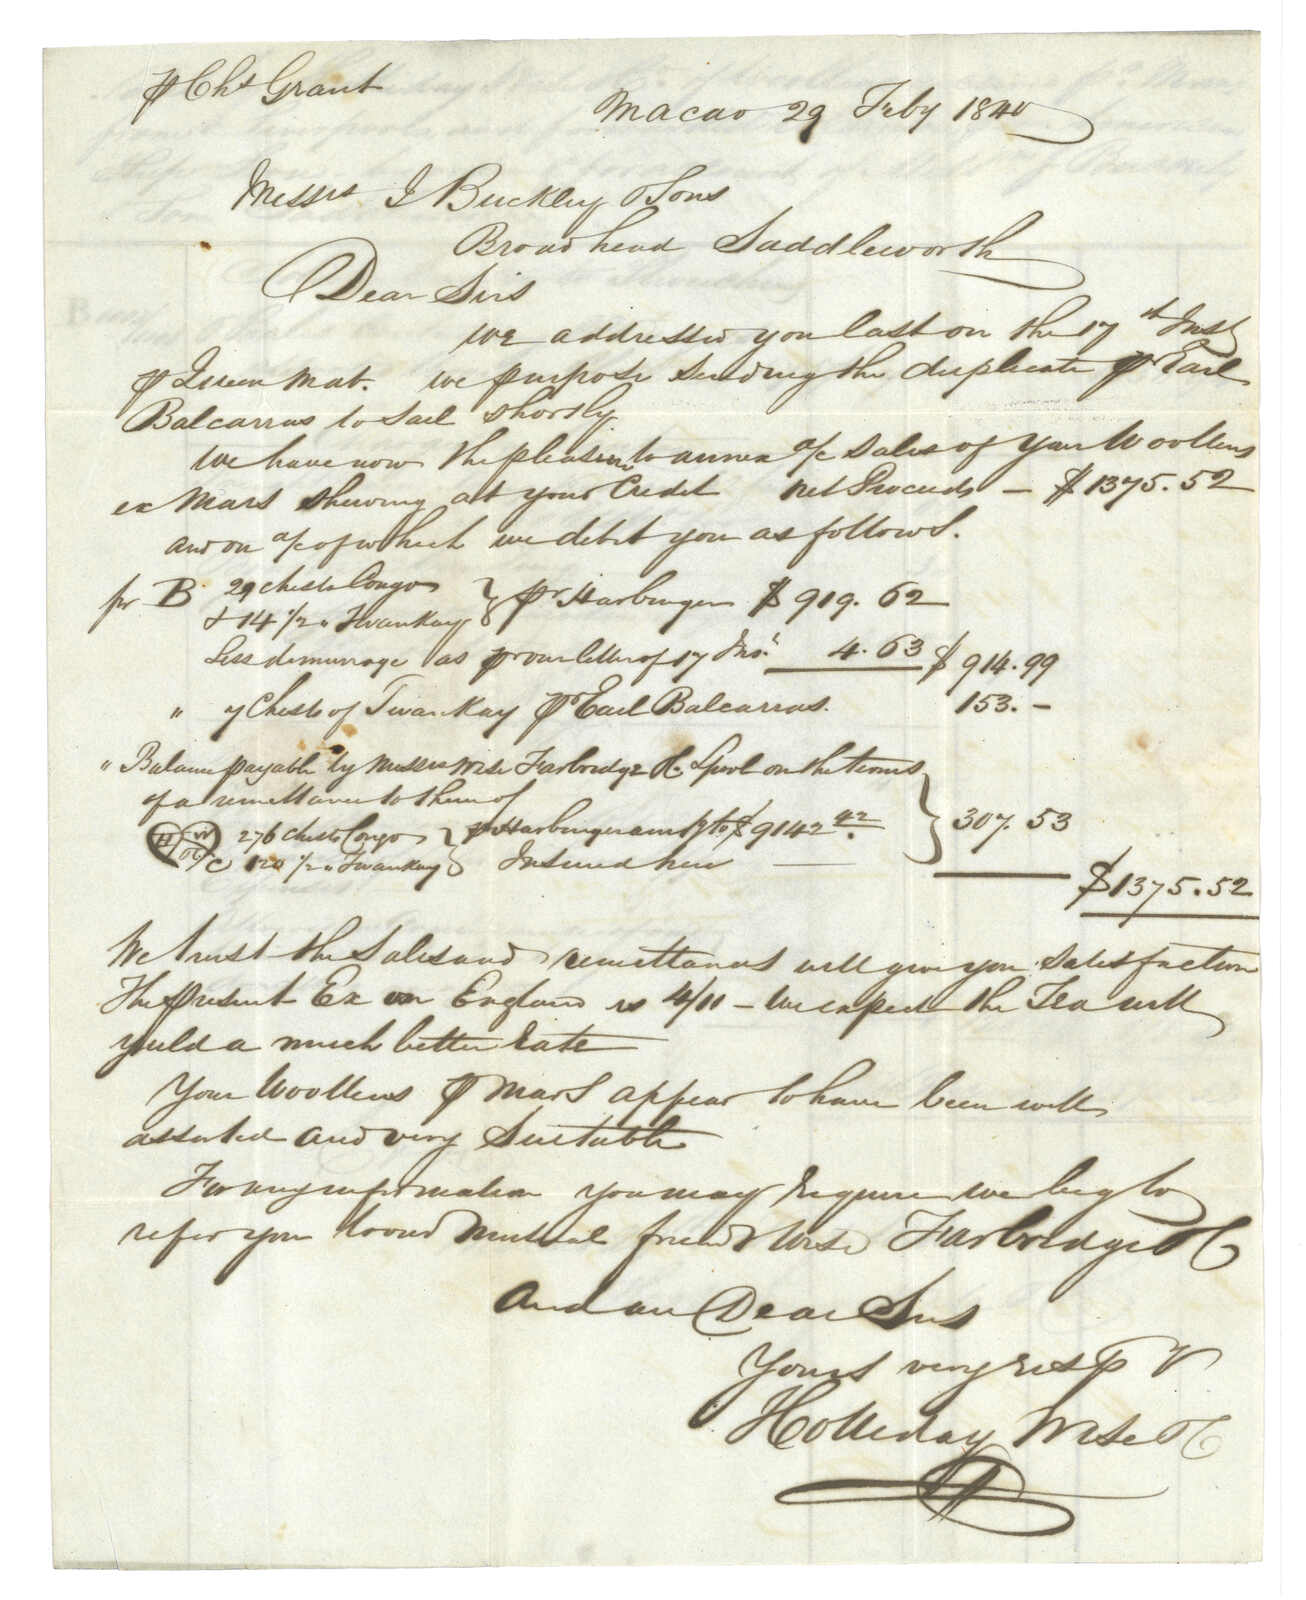 p Chs Grant
Macao 29 Feby 1840
Messrs J Buckley & Sons
Broadhead Saddleworth
Dear Sirs
We addressed you last on the 17th Inst
p Queen Mab. We purpose sending the duplicate pr Earl
Balcarras to sail shortly.
We have now the pleasure to annex a/c sales of your Woollens
ex Mars shewing at your Credit Net Proceeds — $1375.52
and on a/c of which we debit you as follows.
pr B 29 chests Congo } pr Harbinger $919.62
& 14 1/2 " Twankay
Less demurrage as pr our letter of 17 Ins. 4.63 $914.99
" 7 Chests of Twankay pr Earl Balcarras. 153.–
" Balance payable by Messrs Wise Farbridge & Co Lpool on the terms
of a remittance to them of
H W &C 276 chests Congo } pr Harbinger amtg to $9142.42 } 307.53
C 120 1/2 " Twankay Insured here —
$1375.52
We trust the Sales and remittances will give you satisfaction
The present Ex on England is 4/11 – We expect the Tea will
yield a much better rate
Your Woollens p Mars appear to have been well
assorted and very Suitable
For any information you may require we beg to
refer you to our Mutual friends Wise Farbridge & Co
And are Dear Sirs
Yours very respy
Holliday Wise & Co